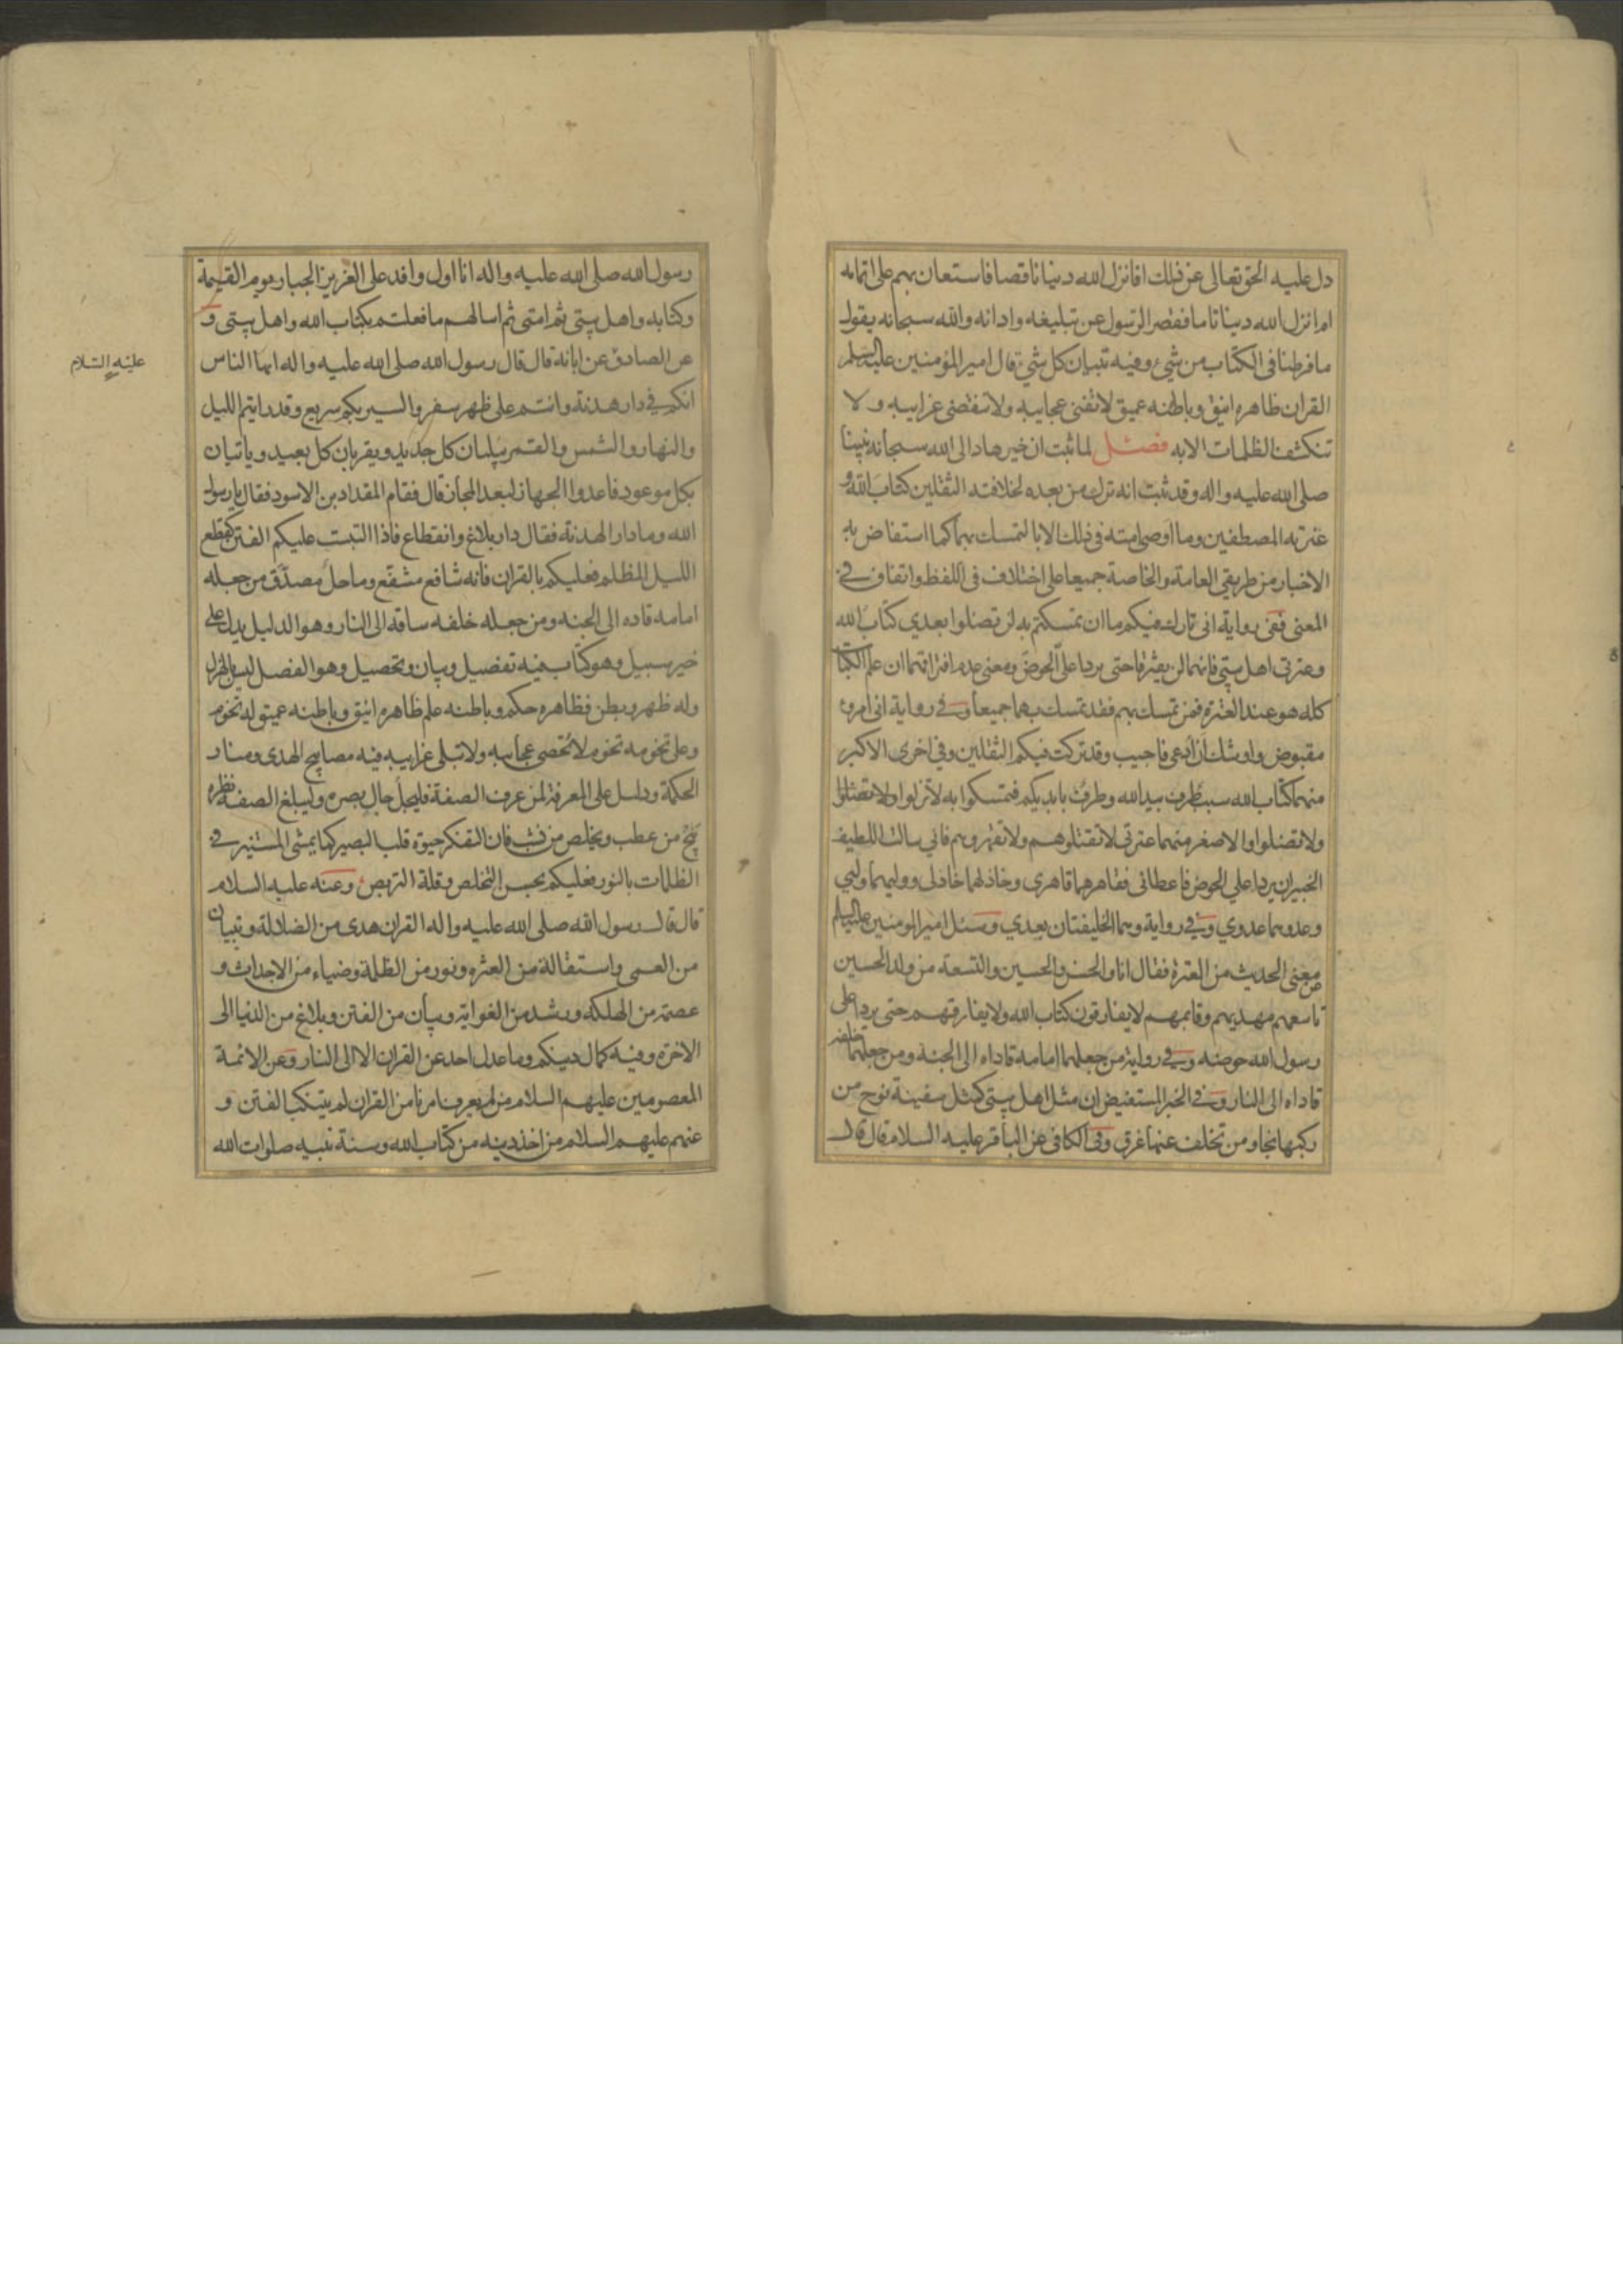 دل عليه الحق تعالى عن ذلك افانزل الله دينا ناقصا فاستعان بهم على اتمامه
ام انزل الله دينا تاما فقصر الرسول عن تبليغه وادائه والله سبحانه يقول
ما فرطنا في الكتاب من شيء وفيه تبيان كل شيء قال امير المؤمنين عليه السلم
القران ظاهره انيق وباطنه عميق لا تفنى عجايبه ولا تنقضي غرايبه ولا
تنكشف الظلمات الا به فصل لما ثبت ان خير هاد الى الله سبحانه نبينا
صلى الله عليه واله وقد ثبت انه ترك من بعده لخلافته الثقلين كتاب الله و
عترته المصطفين وما اوصى امته في ذلك الا بالتمسك بهما كما استفاض به
الاخبار من طريقي العامة والخاصة جميعا على اختلاف في اللفظ واتفاق في
المعنى ففي رواية اني تارك فيكم ما ان تمسكتم به لن تضلوا بعدي كتاب الله
وعترتي اهل بيتي فانهما لن يفترقا حتى يردا علي الحوض ومعنى عدم افتراقهما ان علم الكتاب
كله هو عند العترة فمن تمسك بهم فقد تمسك بهما جميعا وفي رواية اني امرؤ
مقبوض واوشك ان ادعى فاجيب وقد تركت فيكم الثقلين وفي اخرى الاكبر
منهما كتاب الله سبب طرف بيد الله وطرف بايديكم فتمسكوا به لا تزلوا ولا تضلوا
ولا تضلوا والاصغر منهما عترتي لا تقتلوهم ولا تقهروهم فاني سالت اللطيف
الخبير ان يردا علي الحوض فاعطاني فقاهرهما قاهري وخاذلهما خاذلي ووليهما وليي
وعدوهما عدوي وفي رواية وهما الخليفتان بعدي وسئل امير المومنين عليه السلم
عن معنى الحديث من العترة فقال انا والحسن والحسين والتسعة من ولد الحسين
تاسعهم مهديهم وقايمهم لا يفارقون كتاب الله ولا يفارقهم حتى يردا على
رسول الله حوضه وفي رواية من جعلهما امامه قاداه الى الجنة ومن جعلهما خلفه
قاداه الى النار وفي الخبر المستفيض ان مثل اهل بيتي كمثل سفينة نوح من
ركبها نجا ومن تخلف عنها غرق وفي الكافي عن الباقر عليه السلام قال قال
رسول الله صلى الله عليه واله انا اول وافد على العزيز الجبار يوم القيمة
وكتابه واهل بيتي ثم امتي ثم اسالهم ما فعلتم بكتاب الله واهل بيتي و
عن الصادق عن ابائه قال قال رسول الله صلى الله عليه واله ايها الناس
عليه السلام
انكم في دار هدنة وانتم على ظهر سفر والسير بكم سريع وقد رايتم الليل
والنهار والشمس والقمر يبليان كل جديد ويقربان كل بعيد وياتيان
بكل موعود فاعدوا الجهاز لبعد المجاز قال فقام المقداد بن الاسود فقال يا رسول
الله وما دار الهدنة فقال دار بلاغ وانقطاع فاذا التبست عليكم الفتن كقطع
الليل المظلم فعليكم بالقران فانه شافع مشفع وماحل مصدق من جعله
امامه قاده الى الجنه ومن جعله خلفه ساقه الى النار وهو الدليل يدل على
خير سبيل وهو كتاب فيه تفصيل وبيان وتحصيل وهو الفصل ليس بالهزل
وله ظهر وبطن فظاهره حكم وباطنه علم ظاهره انيق وباطنه عميق له تخوم
وعلى تخومه تخوم لا تحصى عجايبه ولا تبلى غرايبه فيه مصابيح الهدى ومنار
الحكمة ودليل على المعرفة لمن عرف الصفة فليجل جال بصره وليبلغ الصفة نظره
ينج من عطب ويخلص من نشب فان التفكر حيوة قلب البصير كما يمشي المستنير في
الظلمات بالنور فعليكم بحسن التخلص وقلة التربص وعنه عليه السلام
قال قال رسول الله صلى الله عليه واله القران هدى من الضلالة وتبيان
من العمى واستقالة من العثره ونور من الظلمة وضياء من الاجداث و
عصمة من الهلكه ورشد من الغواية وبيان من الفتن وبلاغ من الدنيا الى
الاخرة وفيه كمال دينكم وما عدل احد عن القران الا الى النار وعن الائمة
المعصومين عليهم السلام من لم يعرف امرنا من القران لم يتنكب الفتن و
عنهم عليهم السلام من اخذ دينه من كتاب الله وسنة نبيه صلوات الله